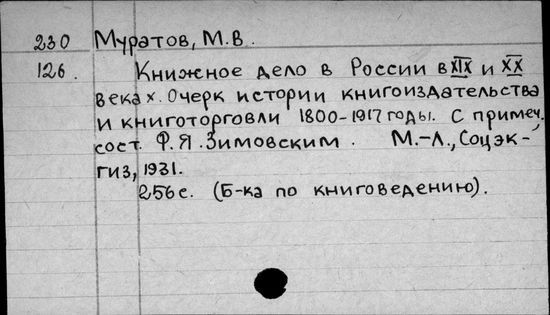 230 Муратов, М.В.
126. Книжное дело в России в XIX и XX
веках. Очерк истории книгоиздательства
и книготорговли 1800-1917 годы. С примеч.
сост. Ф.Я. Зимовским. М.-Л., Соцэк-
гиз, 1931.
256с. (Б-ка по книговедению).